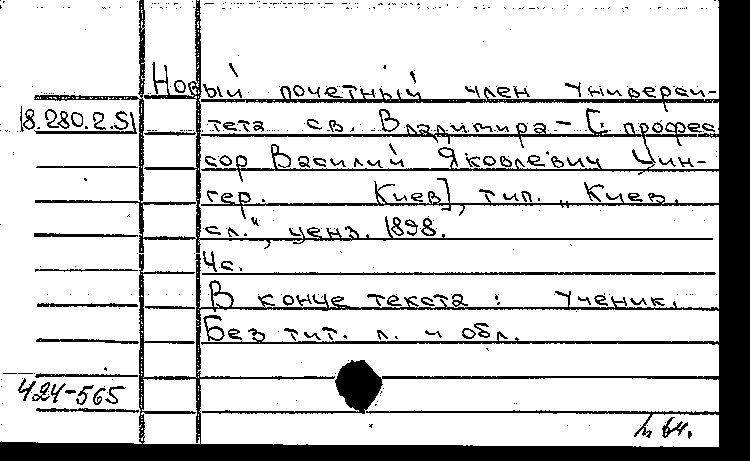 Новый почетный член Универси-
18.280.2.51 тета св. Владимира - [профес
сор Василий Яковлевич Цин-
гер. Киев], тип. „Киев.
сл.", ценз. 1898.
4с.
В конце текста: Ученик.
Без тит. л. и обл.
424-565
64.